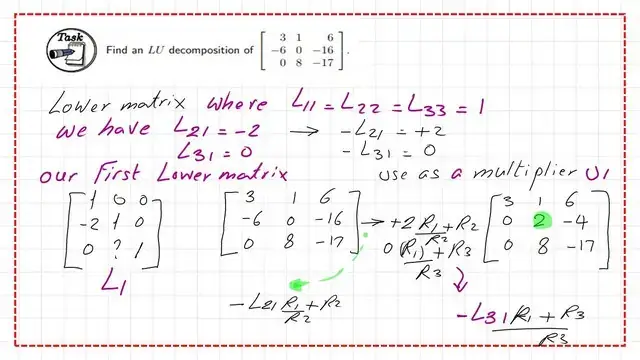 Task
Find an LU decomposition of [ 3 1 6
-6 0 -16
0 8 -17 ].
Lower matrix where L11 = L22 = L33 = 1
we have L21 = -2 → -L21 = +2
L31 = 0 - L31 = 0
our First Lower matrix use as a multiplier U1
[ 1 0 0
-2 1 0
0 ? 1 ]
L1
[ 3 1 6
-6 0 -16
0 8 -17 ]
→ +2 R1 + R2 / R2
0(R1) + R3 / R3
[ 3 1 6
0 2 -4
0 8 -17 ]
-L21 R1 + R2 / R2
-L31 R1 + R3 / R3